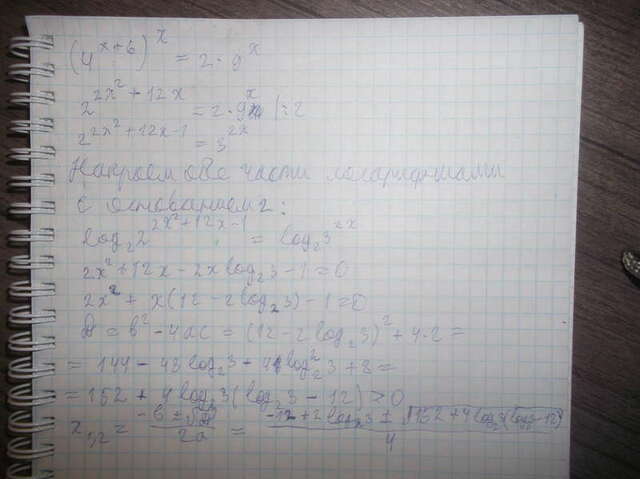 (4^{x+6})^x = 2 · 9^x
2^{2x²+12x} = 2 · 9^x | : 2
2^{2x²+12x-1} = 3^{2x}
обе части логарифмами
с основанием 2:
log₂2^{2x²+12x-1} = log₂3^{2x}
2x²+12x-2xlog₂3-1=0
2x² + x(12-2log₂3)-1=0
D = b²-4ac = (12-2log₂3)² + 4·2 =
= 144 - 48log₂3 - 4log₂²3 + 8 =
= 152 + 4log₂3(log₂3 - 12) > 0
x₁,₂ = \frac{-b ± √D}{2a} = \frac{-12+2log₂3 ± √(152+4log₂3(log₂3-12))}{4}